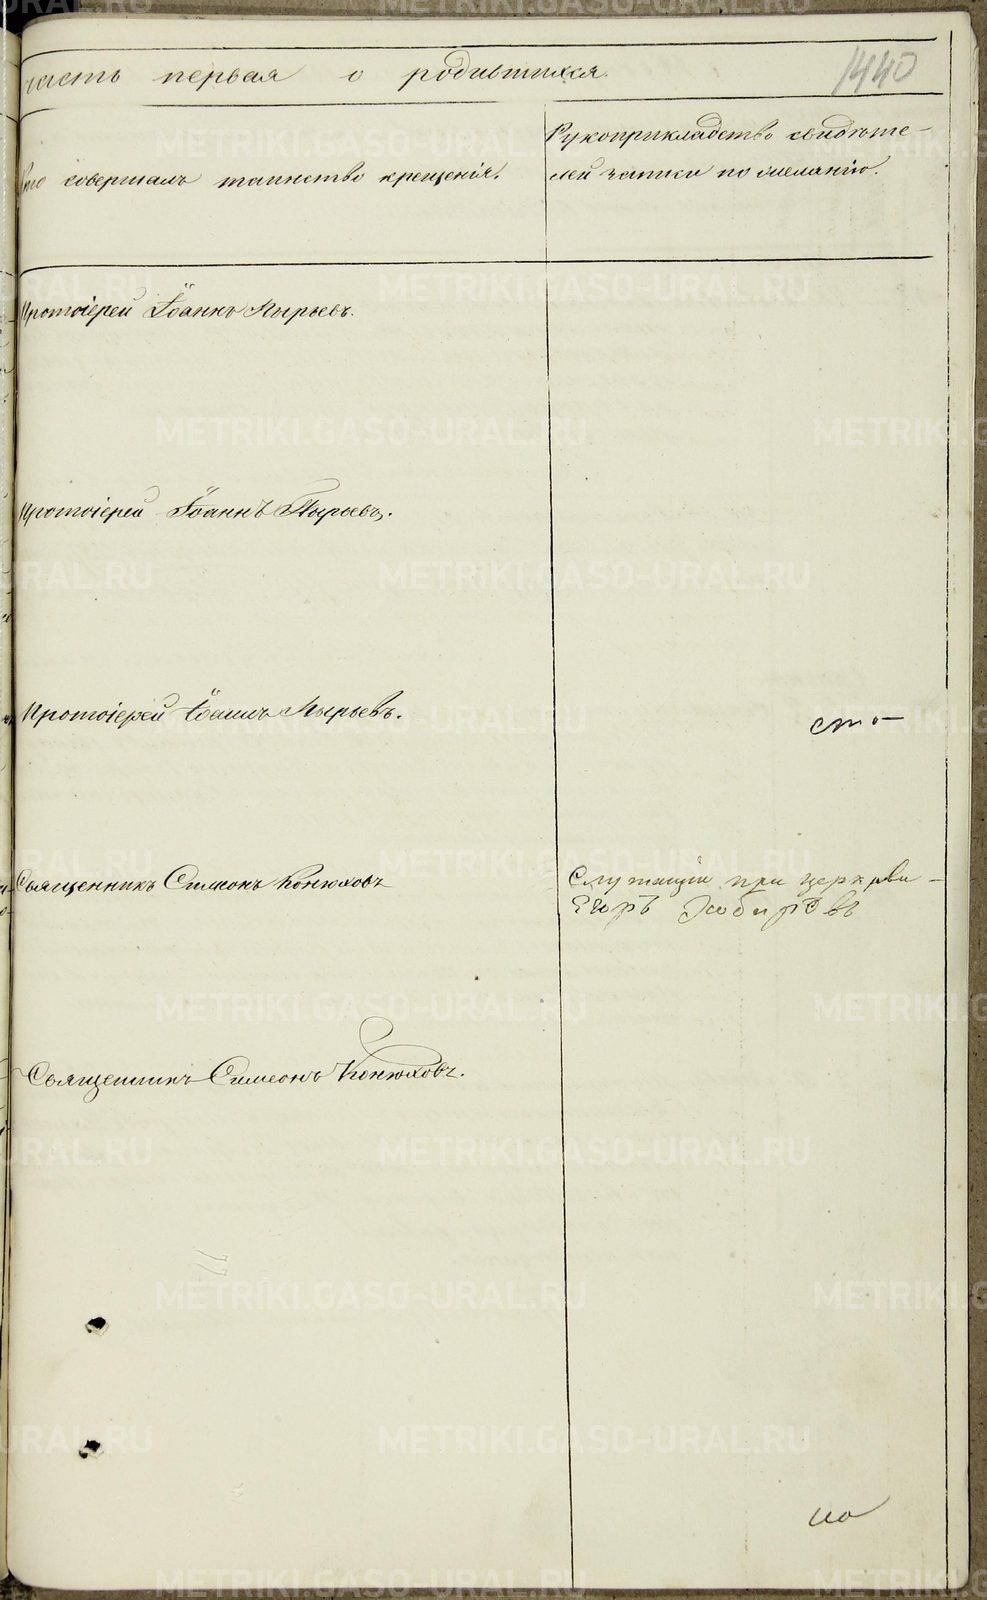 часть первая о родившихся.
1440
Кто совершалъ таинство крещенія.
Рукоприкладство свидѣте-
лей записи по желанію.
Протоіерей Іоаннъ Пырьевъ.
Протоіерей Іоаннъ Пырьевъ.
Протоіерей Іоаннъ Пырьевъ.
сто-
Священникъ Симеонъ Конюховъ
Служащій при церкви -
Егоръ
Священникъ Симеонъ Конюховъ.
METRIKI.GASO-URAL.RU